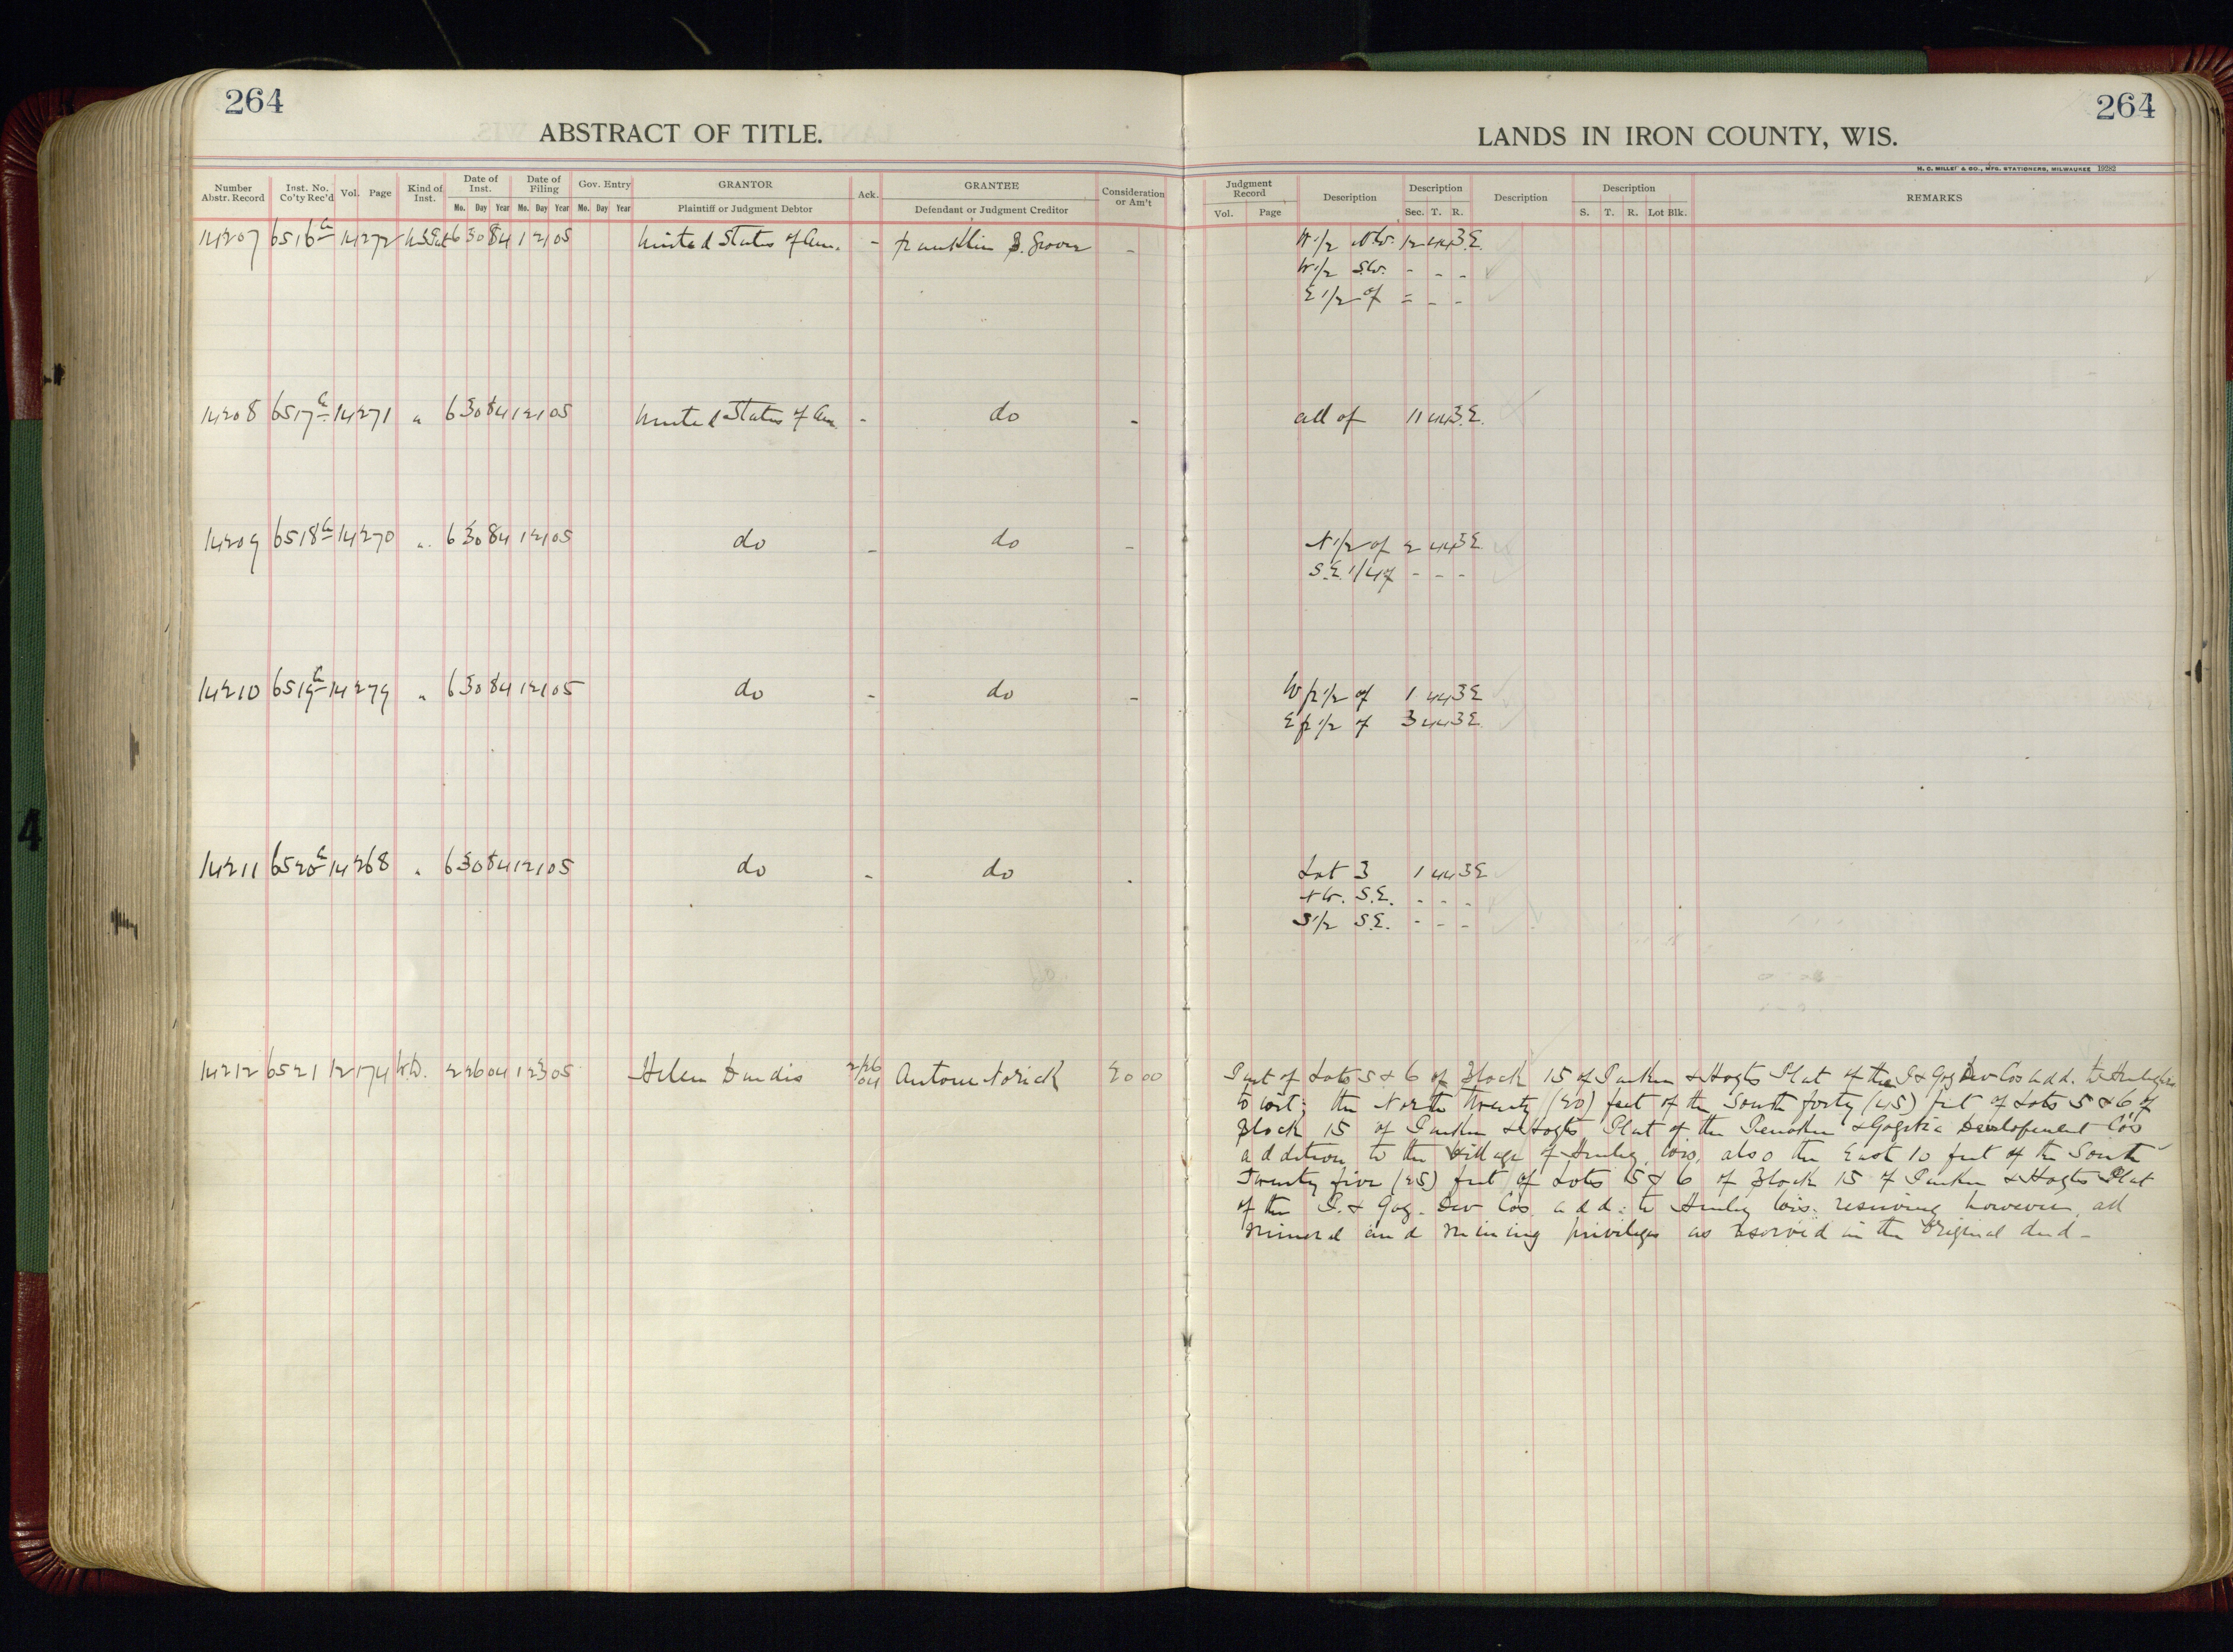 264
ABSTRACT OF TITLE.
Number Abstr. Record Inst. No. Co'ty Rec'd Vol. Page Kind of Inst. Date of Inst. Mo. Day Year Date of Filing Mo. Day Year Gov. Entry Mo. Day Year GRANTOR Plaintiff or Judgment Debtor Ack. GRANTEE Defendant or Judgment Creditor Consideration or Am't
14207 6516 a 14 272 U.S.Pat 6 30 84 1 21 05 United States of Am. - Franklin B. Grover -
14208 6517 a 14 271 " 6 30 84 1 21 05 United States of Am - do -
14209 6518 a 14 270 " 6 30 84 1 21 05 do - do -
14210 6519 a 14 279 " 6 30 84 1 21 05 do - do -
14211 6520 a 14 268 " 6 30 84 1 21 05 do - do -
14212 6521 12 174 W.D. 2 26 04 1 23 05 Helen 2/26 04 Antone Norick 20 00
264
LANDS IN IRON COUNTY, WIS.
H. C. MILLER & CO., MFG. STATIONERS, MILWAUKEE 19282
Judgment Record Vol. Page Description Description Sec. T. R. Description Description S. T. R. Lot Blk. REMARKS
W 1/2 N.W. 12 44 3 E.
W 1/2 S.W. - - -
E 1/2 of = - -
all of 11 44 3 E.
N 1/2 of 2 44 3 E
S.E. 1/4 of - - -
W fr 1/2 of 1 44 3 E
E fr 1/2 of 3 44 3 E
Lot 3 1 44 3 E
NW. S.E. - - -
S 1/2 S.E. - - -
Part of Lots 5 & 6 of Block 15 of & Hogts Plat of the P & Gog Dev Cos add. to Hurley
to wit; the North twenty (20) feet of the South forty (45) feet of Lots 5 & 6 of
Block 15 of & Hogts Plat of the Penokee & Gogebic Development Co's
addition to the Village of Hurley, Wis. also the East 10 feet of the South
Twenty five (25) feet of Lots 5 & 6 of Block 15 of & Hogts Plat
of the P. & Gog. Dev Cos. add: to Hurley Wis. reserving however all
mineral and mining privileges as reserved in the original deed -